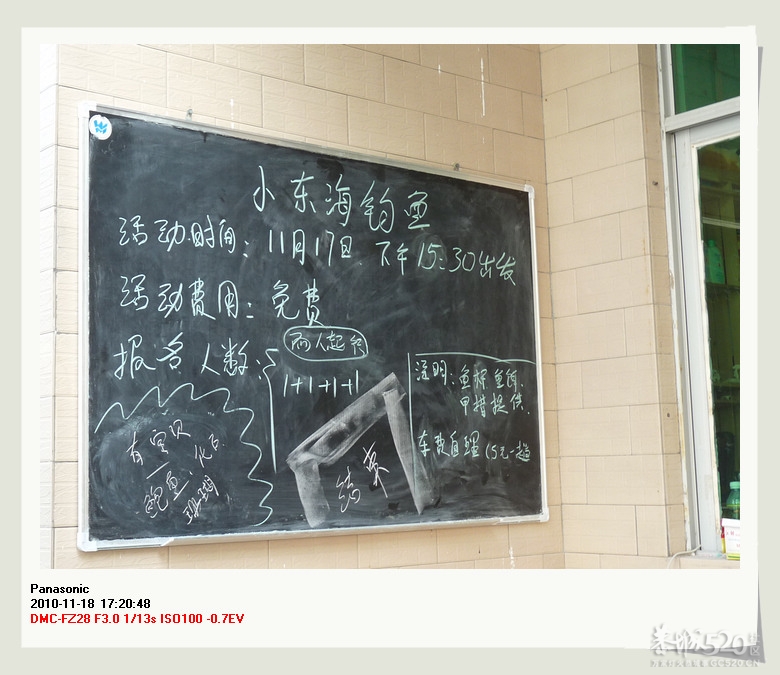 小东海钓鱼
活动时间：11月17日 下午15:30出发
活动费用：免费
报名人数：
两人起
1+1+1+1
注明：鱼杆 鱼饵
提供.
车费自理 15元一趟
有宝贝
鲍鱼. 化石
珊瑚
结束
Panasonic
2010-11-18 17:20:48
DMC-FZ28 F3.0 1/13s ISO100 -0.7EV
520社区
GC520.CN